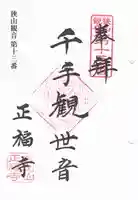 奉拝
狭山観音 第十三番
千手観世音
正福寺